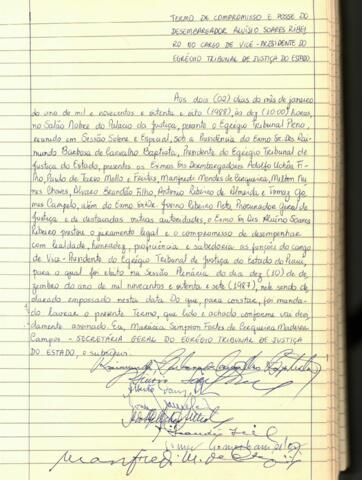 TERMO DE COMPROMISSO E POSSE DO
DESEMBARGADOR ALUÍSIO SOARES RIBEI
RO NO CARGO DE VICE-PRESIDENTE DO
EGRÉGIO TRIBUNAL DE JUSTIÇA DO ESTADO.
Aos dois (02) dias do mês de janeiro
do ano de mil e novecentos e oitenta e oito (1988), às dez (10:00) horas,
no Salão Nobre do Palácio da Justiça, perante o Egrégio Tribunal Pleno,
reunido em Sessão Solene e Especial, sob a Presidência do Exmo Sr. Des. Rai
mundo Barbosa de Carvalho Baptista, Presidente do Egrégio Tribunal de
Justiça do Estado, presentes os Exmos Srs Desembargadores Adolfo Uchôa Fi
lho, Paulo de Tarso Mello e Freitas, Manfredi Mendes de Cerqueira, Milton Nu
nes Chaves, Álvaro Brandão Filho, Antonio Ribeiro de Almeida e Tomaz Go
mes Campelo, além do Exmo Sr. Ribeiro Neto, Procurador Geral de
Justiça e de destacadas outras autoridades, o Exmo Sr. Des. Aluísio Soares
Ribeiro prestou o juramento legal e o compromisso de desempenhar
com lealdade, honradez, proficiência e sabedoria as funções do cargo
de Vice-Presidente do Egrégio Tribunal de Justiça do Estado do Piauí,
para o qual foi eleito na Sessão Plenária do dia dez (10) de de
zembro do ano de mil novecentos e oitenta e sete (1987), nele sendo de
clarado empossado nesta data. Do que, para constar, foi manda
do lavrar o presente Termo, que lido e achado conforme vai devi
damente assinado. Eu, Fortes de Cerqueira Madeira
Campos - SECRETÁRIA GERAL DO EGRÉGIO TRIBUNAL DE JUSTIÇA
DO ESTADO, o subscrevi.
Raimundo Barbosa de Carvalho Baptista
Manfredi M. de Cerqueira